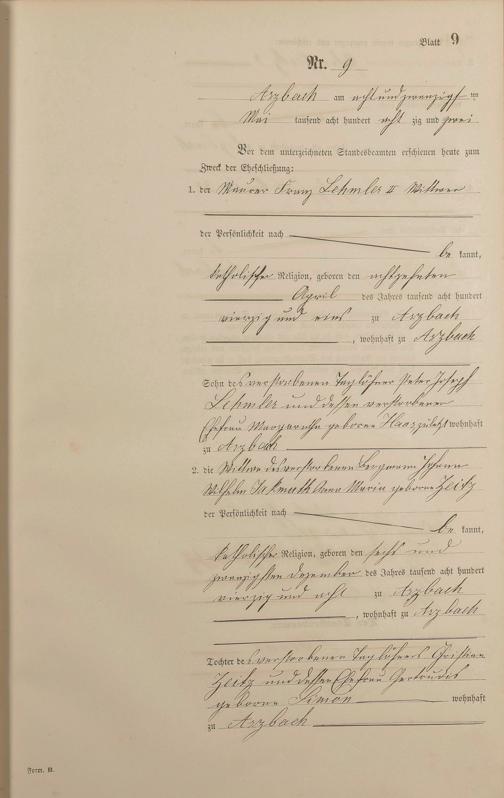 Blatt 9
Nr. 9
Arzbach am acht und zwanzigsten
Mai tausend acht hundert acht zig und zwei
Vor dem unterzeichneten Standesbeamten erschienen heute zum
Zweck der Eheschließung:
1. der Maurer Franz Lehmler II Wittwer
der Persönlichkeit nach
be kannt,
katholischer Religion, geboren den achtzehnten
April des Jahres tausend acht hundert
vierzig und eins zu Arzbach
, wohnhaft zu Arzbach
Sohn des verstorbenen Taglöhner Peter Joseph
Lehmler und dessen verstorbenen
Ehefrau Margaretha geborene Haas zuletzt wohnhaft
zu Arzbach
2. die Wittwe des verstorbenen Bergmann Johann
Wilhelm Anna Maria geborene Zeitz
der Persönlichkeit nach
be kannt,
katholischer Religion, geboren den sechs und
zwanzigsten Dezember des Jahres tausend acht hundert
vierzig und acht zu Arzbach
, wohnhaft zu Arzbach
Tochter des verstorbenen Taglöhners
Zeitz und dessen Ehefrau Gertrudis
geborene Simon wohnhaft
zu Arzbach
Form. B.